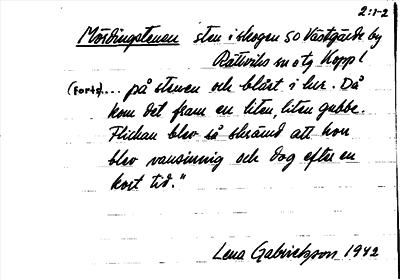 2:1-2
Mördingstenen sten i skogen SO Västgärde by
Rättviks sn o tg Koppl
(Forts).... på stenen och blåst i lur. Då
kom det fram en liten, liten gubbe.
Flickan blev så skrämd att hon
blev vansinnig och dog efter en
kort tid."
Lena Gabrielsson 1942